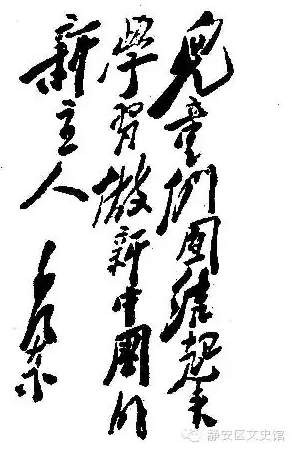 兒童们團结起来
學習做新中國的
新主人
毛泽东
静安区文史馆